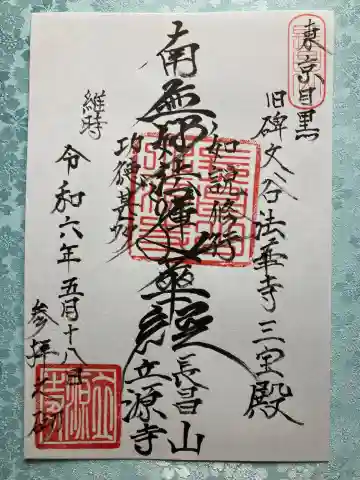 東京目黒
旧碑文谷法華寺三宝殿
如説修行
南無妙法蓮華経
功徳甚多
長昌山
立源寺
維時
令和六年五月十八日
参拝之砌